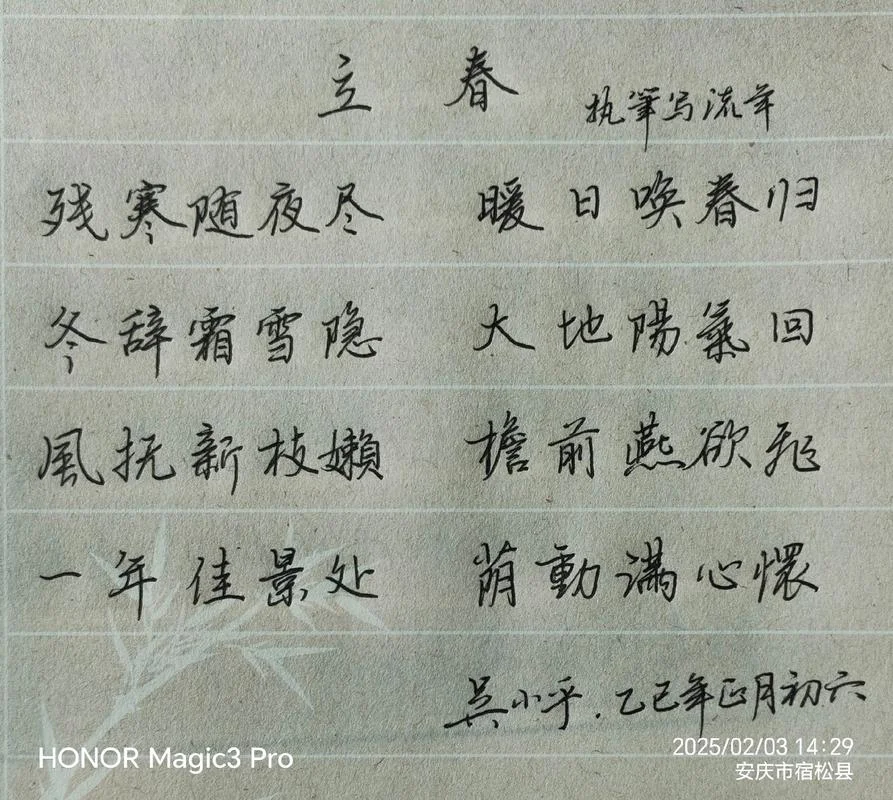 立春
执筆写流年
残寒随夜尽 暖日唤春归
冬辞霜雪隐 大地陽氣回
風抚新枝嫩 檐前燕欲飛
一年佳景处 萌動满心懷
吴小平.乙巳年正月初六
HONOR Magic3 Pro
2025/02/03 14:29
安庆市宿松县